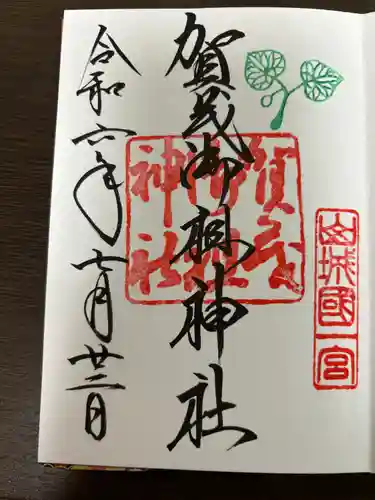 山城國一宮
賀茂御祖神社
賀茂
御祖
神社
令和六年七月廿二日